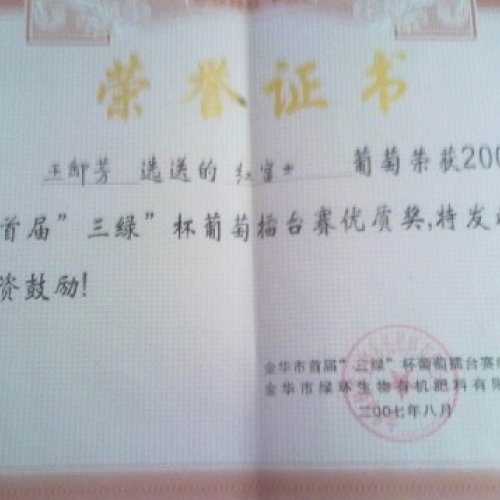 荣誉证书
选送的 红富士 葡萄荣获200
首届"三绿"杯葡萄擂台赛优质奖,特发
资鼓励!
金华市首届"三绿"杯葡萄擂台赛
金华市绿环生物有机肥料有限
二〇〇七年八月